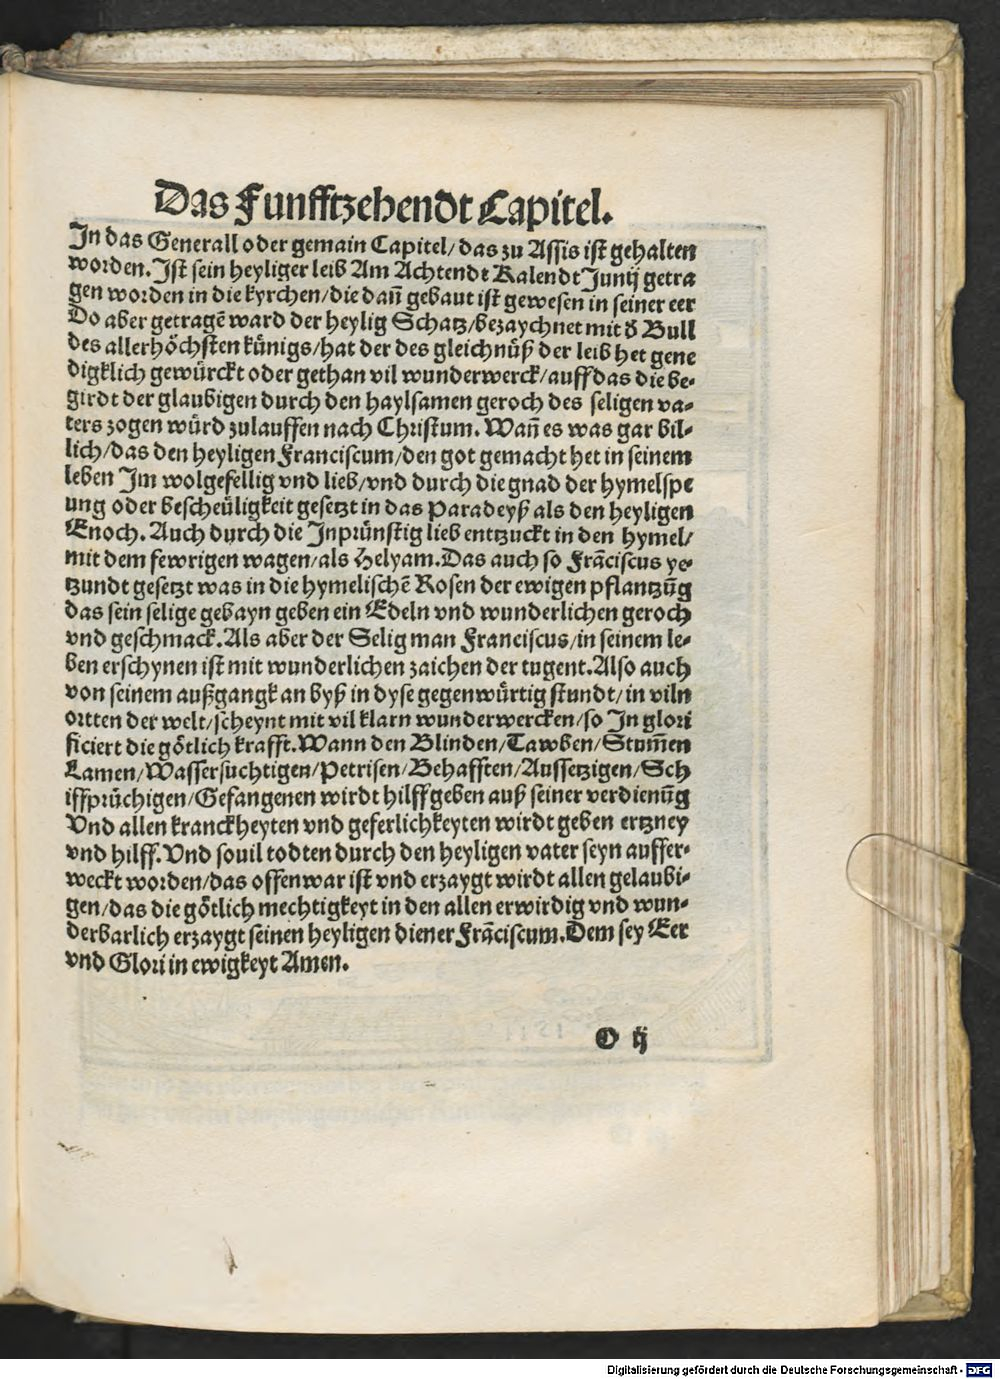 Das Funfftzehendt Capitel.
In das Generall oder gemain Capitel/das zu Assis ist gehalten
worden. Ist sein heyliger leib Am Achtendt Kalendt Junij getra
gen worden in die kyrchen/die dañ gebaut ist gewesen in seiner eer
Do aber getragē ward der heylig Schatz/bezaychnet mit d̄ Bull
des allerhöchsten künigs/hat der des gleichnüß der leib het gene
digklich gewürckt oder gethan vil wunderwerck/auff das die be-
girdt der glaubigen durch den haylsamen geroch des seligen va-
ters zogen würd zulauffen nach Christum. Wañ es was gar bil-
lich/das den heyligen Franciscum/den got gemacht het in seinem
leben Im wolgefellig vnd lieb/vnd durch die gnad der hymelspe
ung oder bescheüligkeit gesetzt in das Paradeyß als den heyligen
Enoch. Auch durch die Inprünstig lieb entzuckt in den hymel/
mit dem fewrigen wagen/als Helyam. Das auch so Frāciscus ye-
tzundt gesetzt was in die hymelischē Rosen der ewigen pflantzūg
das sein selige gebayn geben ein Edeln vnd wunderlichen geroch
vnd geschmack. Als aber der Selig man Franciscus/in seinem le-
ben erschynen ist mit wunderlichen zaichen der tugent. Also auch
von seinem außgangk an byß in dyse gegenwürtig stundt/in viln
ortten der welt/scheynt mit vil klarn wunderwercken/so In glori
ficiert die götlich krafft. Wann den Blinden/Tawben/Stum̄en
Lamen/Wassersuchtigen/Petrisen/Behafften/Aussetzigen/Sch
iffprüchigen/Gefangenen wirdt hilff geben auß seiner verdienūg
Vnd allen kranckheyten vnd geferlichkeyten wirdt geben ertzney
vnd hilff. Vnd souil todten durch den heyligen vater seyn auffer-
weckt worden/das offenwar ist vnd erzaygt wirdt allen gelaubi-
gen/das die götlich mechtigkeyt in den allen erwirdig vnd wun-
derbarlich erzaygt seinen heyligen diener Frāciscum. Dem sey Eer
vnd Glori in ewigkeyt Amen.
O ij
Digitalisierung gefördert durch die Deutsche Forschungsgemeinschaft - DFG